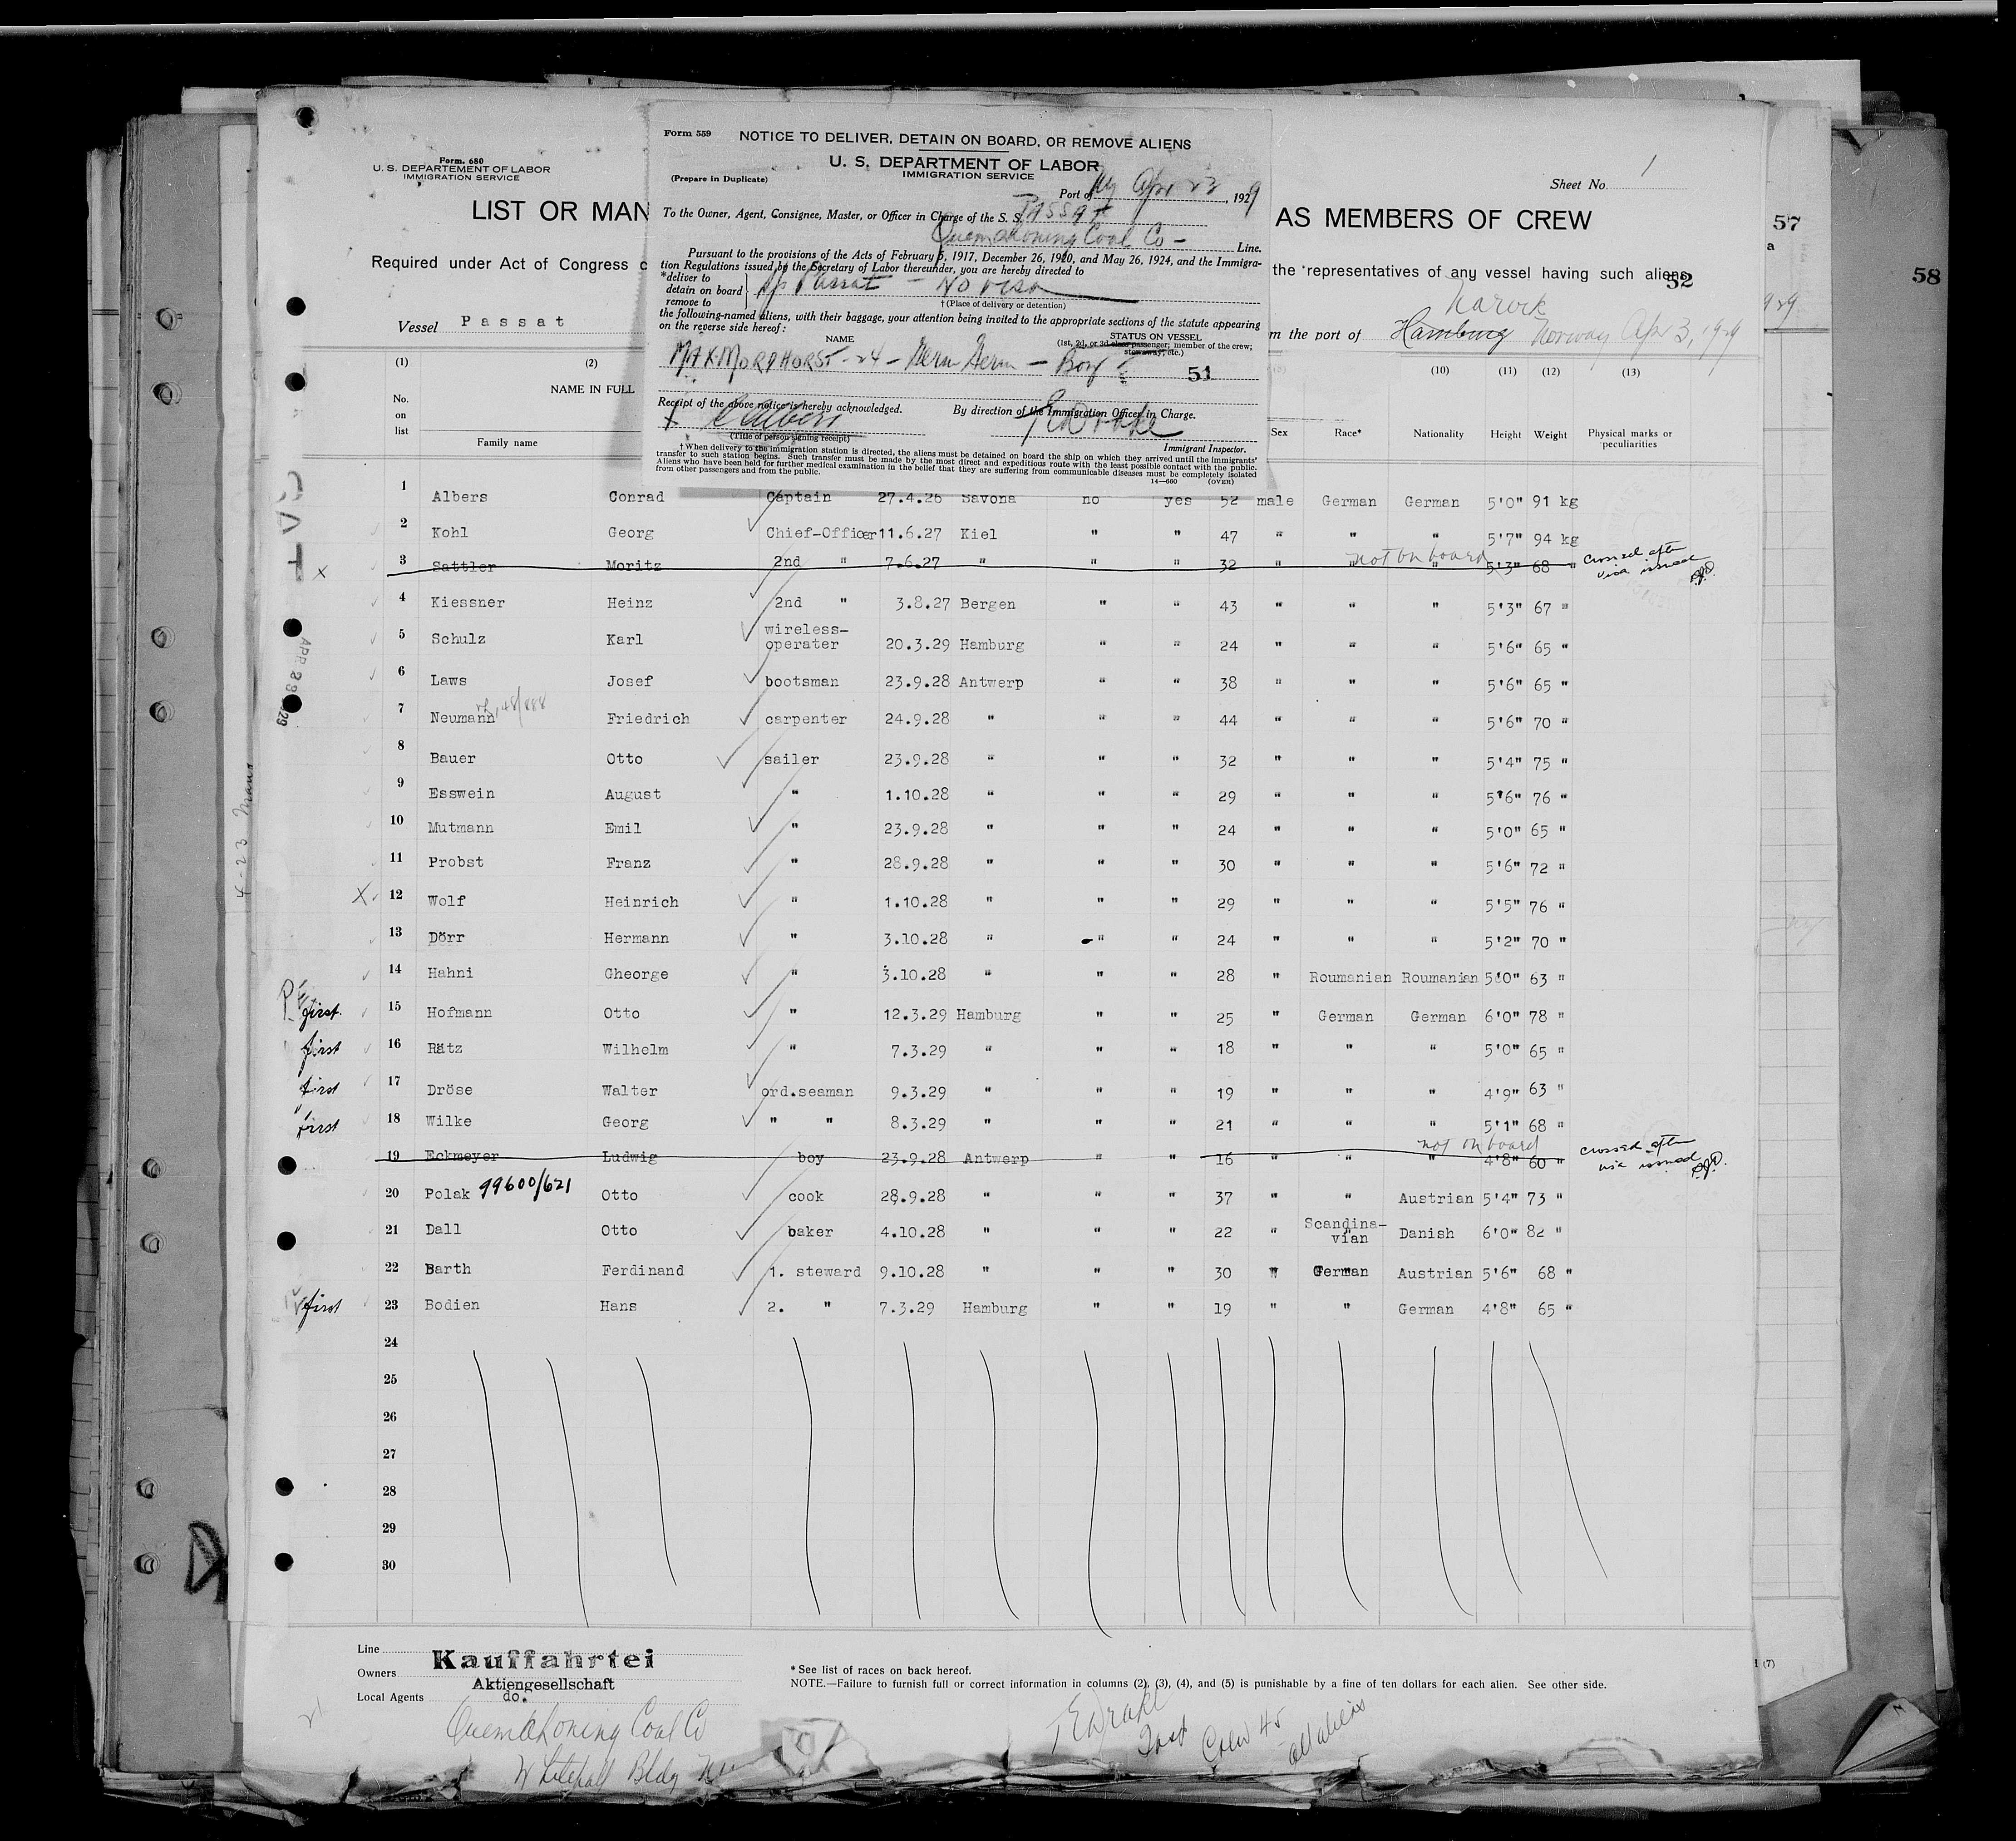 Form 559
NOTICE TO DELIVER, DETAIN ON BOARD, OR REMOVE ALIENS
U. S. DEPARTMENT OF LABOR
IMMIGRATION SERVICE
(Prepare in Duplicate)
Port of Ny Apr 23, 1929
To the Owner, Agent, Consignee, Master, or Officer in Charge of the S. S. PASSAT
Quemahoning Coal Co — Line.
Pursuant to the provisions of the Acts of February 5, 1917, December 26, 1920, and May 26, 1924, and the Immigra-
tion Regulations issued by the Secretary of Labor thereunder, you are hereby directed to
*deliver to
detain on board
remove to
S/s Passat — No visa
† (Place of delivery or detention)
the following-named aliens, with their baggage, your attention being invited to the appropriate sections of the statute appearing
on the reverse side hereof:
NAME
STATUS ON VESSEL
(1st, 2d, or 3d class passenger; member of the crew;
stowaway, etc.)
MAX MORDHORST - 24 - Germ Germ — Boy
51
Receipt of the above notice is hereby acknowledged.
By direction of the Immigration Officer in Charge.
X C Albers
(Title of person signing receipt)
T E Drake
Immigrant Inspector.
† When delivery to the immigration station is directed, the aliens must be detained on board the ship on which they arrived until the immigrants'
transfer to such station begins. Such transfer must be made by the most direct and expeditious route with the least possible contact with the public.
Aliens who have been held for further medical examination in the belief that they are suffering from communicable diseases must be completely isolated
from other passengers and from the public.
14—660 (OVER)
Form. 680
U. S. DEPARTEMENT OF LABOR
IMMIGRATION SERVICE
Sheet No. 1
LIST OR MAN
AS MEMBERS OF CREW
57
58
Required under Act of Congress
the representatives of any vessel having such aliens
52
Vessel Passat
m the port of Hamburg Narvik Norway Apr 3, 1929
(1) (2) (10) (11) (12) (13)
No. on list
NAME IN FULL
Family name
Sex Race* Nationality Height Weight Physical marks or peculiarities
1 Albers Conrad Captain 27.4.26 Savona no yes 52 male German German 5'0" 91 kg
2 Kohl Georg Chief-Officer 11.6.27 Kiel " " 47 " " " 5'7" 94 kg
3 Sattler Moritz 2nd " 7.6.27 " " " 32 " " " 5'3" 68 " not on board crossed after visa issued
4 Kiessner Heinz 2nd " 3.8.27 Bergen " " 43 " " " 5'3" 67 "
5 Schulz Karl wireless-operater 20.3.29 Hamburg " " 24 " " " 5'6" 65 "
6 Laws Josef bootsman 23.9.28 Antwerp " " 38 " " " 5'6" 65 "
7 Neumann Friedrich carpenter 24.9.28 " " " 44 " " " 5'6" 70 "
8 Bauer Otto sailer 23.9.28 " " " 32 " " " 5'4" 75 "
9 Esswein August " 1.10.28 " " " 29 " " " 5'6" 76 "
10 Mutmann Emil " 23.9.28 " " " 24 " " " 5'0" 65 "
11 Probst Franz " 28.9.28 " " " 30 " " " 5'6" 72 "
X 12 Wolf Heinrich " 1.10.28 " " " 29 " " " 5'5" 76 "
13 Dörr Hermann " 3.10.28 " " " 24 " " " 5'2" 70 "
14 Hahni Gheorge " 3.10.28 " " " 28 " Roumanian Roumanian 5'0" 63 "
first. 15 Hofmann Otto " 12.3.29 Hamburg " " 25 " German German 6'0" 78 "
first 16 Rätz Wilhelm " 7.3.29 " " " 18 " " " 5'0" 65 "
first 17 Dröse Walter ord.seaman 9.3.29 " " " 19 " " " 4'9" 63 "
first 18 Wilke Georg " " 8.3.29 " " " 21 " " " 5'1" 68 "
19 Eckmeyer Ludwig boy 23.9.28 Antwerp " " 16 " " " 4'8" 60 " not on board crossed after visa issued
20 Polak 99600/621 Otto cook 28.9.28 " " " 37 " " Austrian 5'4" 73 "
21 Dall Otto baker 4.10.28 " " " 22 " Scandinavian Danish 6'0" 82 "
22 Barth Ferdinand 1. steward 9.10.28 " " " 30 " German Austrian 5'6" 68 "
first 23 Bodien Hans 2. " 7.3.29 Hamburg " " 19 " " German 4'8" 65 "
24
25
26
27
28
29
30
Line Kauffahrtei
Owners Aktiengesellschaft
Local Agents do.
Quemahoning Coal Co
Whitehall Bldg
* See list of races on back hereof.
NOTE.—Failure to furnish full or correct information in columns (2), (3), (4), and (5) is punishable by a fine of ten dollars for each alien. See other side.
T E Drake
Crew 45
all aliens